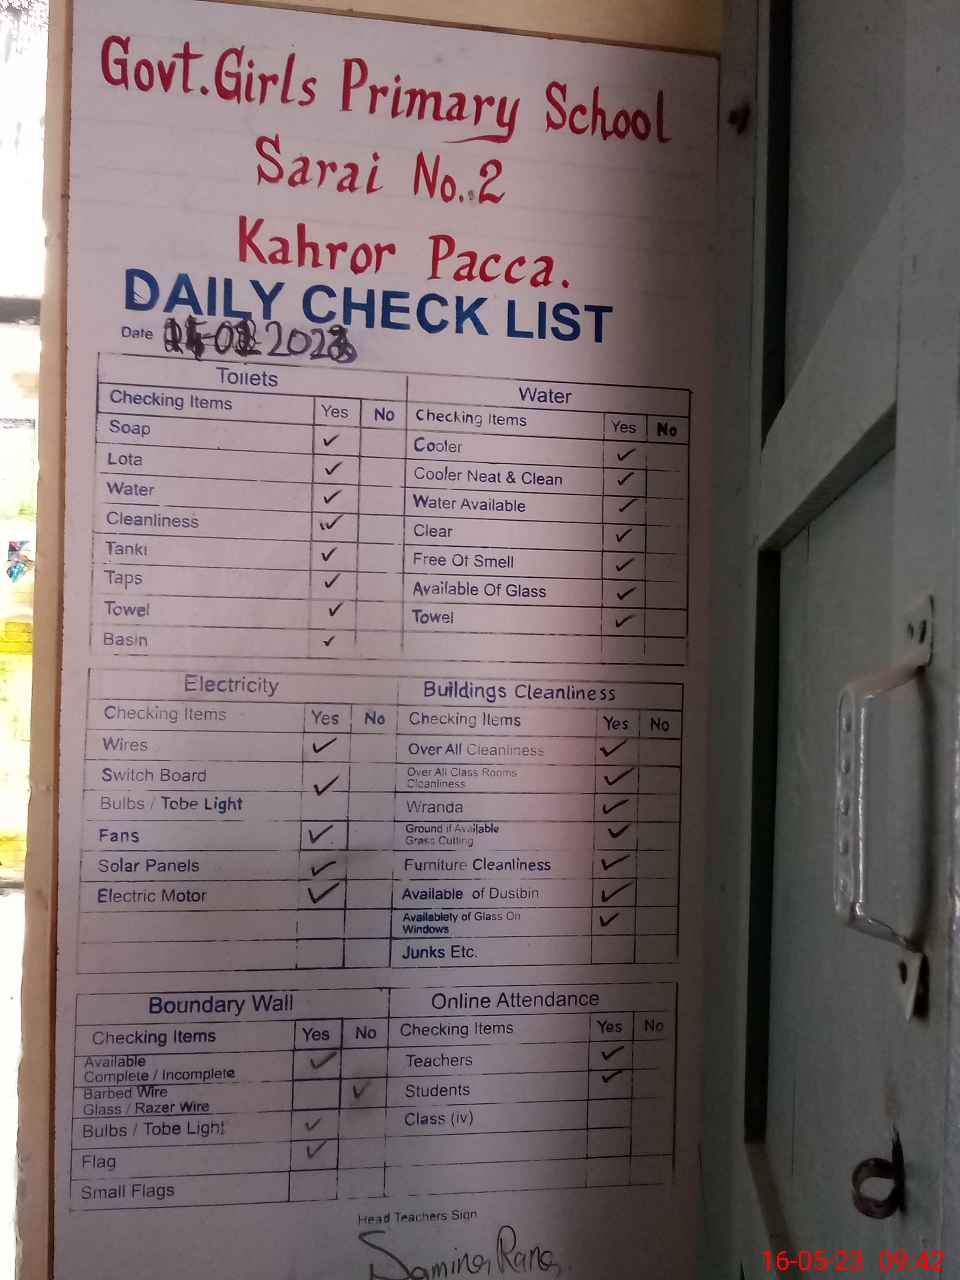 Govt.Girls Primary School
Sarai No.2
Kahror Pacca.
DAILY CHECK LIST
Date 2023
Toilets
Checking Items Yes No
Soap ✓
Lota ✓
Water ✓
Cleanliness ✓
Tanki ✓
Taps ✓
Towel ✓
Basin ✓
Water
Checking Items Yes No
Cooler ✓
Cooler Neat & Clean ✓
Water Available ✓
Clear ✓
Free Of Smell ✓
Available Of Glass ✓
Towel ✓
Electricity
Checking Items Yes No
Wires ✓
Switch Board ✓
Bulbs / Tobe Light
Fans ✓
Solar Panels ✓
Electric Motor ✓
Buildings Cleanliness
Checking Items Yes No
Over All Cleanliness ✓
Over All Class Rooms
Cleanliness ✓
Wranda ✓
Ground if Available
Grass Cutting ✓
Furniture Cleanliness ✓
Available of Dustbin ✓
Availablety of Glass On
Windows ✓
Junks Etc.
Boundary Wall
Checking Items Yes No
Available
Complete / Incomplete ✓
Barbed Wire
Glass / Razer Wire ✓
Bulbs / Tobe Light ✓
Flag ✓
Small Flags
Online Attendance
Checking Items Yes No
Teachers ✓
Students ✓
Class (iv)
Head Teachers Sign
Samina Rana
16-05-23 09:42